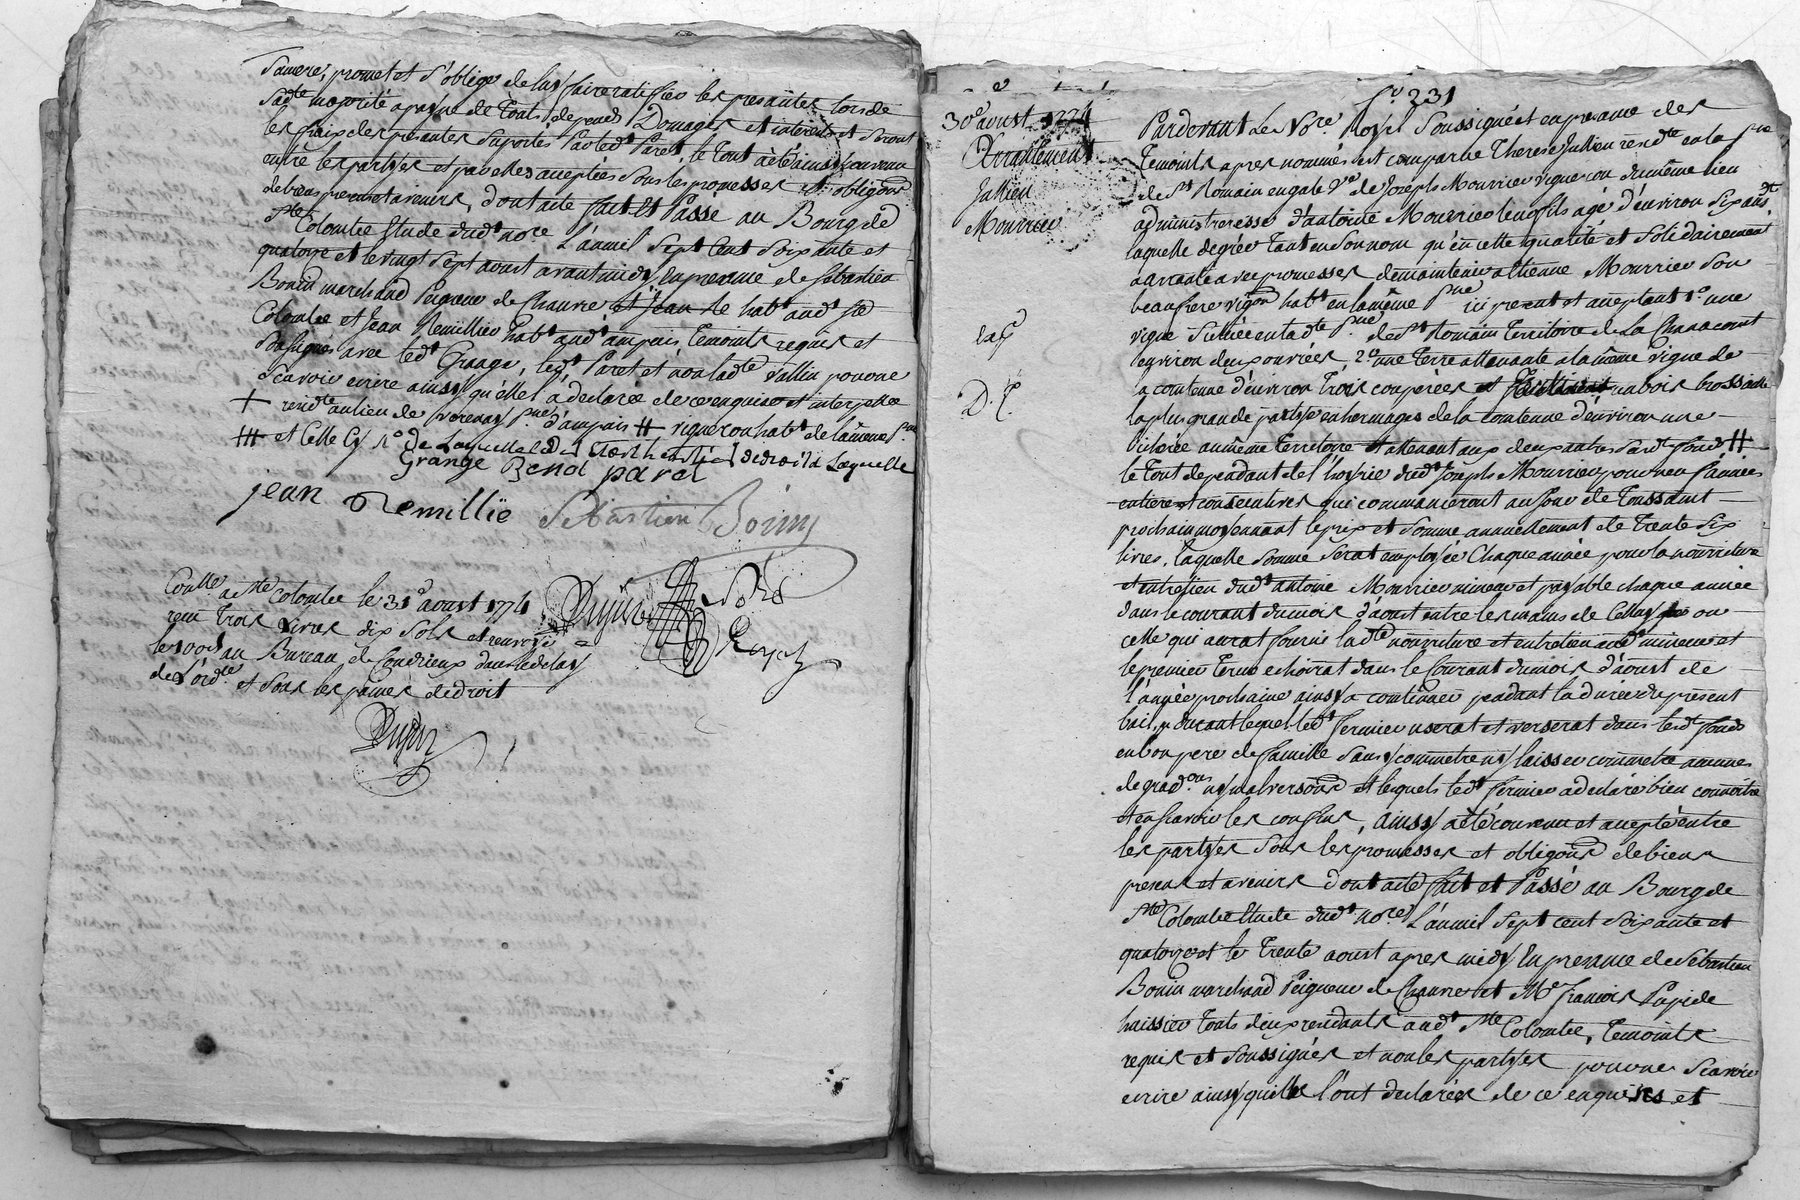 Sa mere, promet et s'oblige de luy faire ratiffier les presantes lors de
sadte majorité a payne de touts depends Domages et interets et seront
les fraix des presantes suportés par ledt Paret, le tout a été ainsy convenu
entre les partyes et par elles acceptées sous les promesses et obligons
de biens presents et avenirs, dont acte fait et Passé au Bourg de
Ste Colombe Etude dudt nore L'an mil sept cent soixante et
quatorze et le vingt sept aoust avant midy En presance de Sebastien
Bonin marchand Peigneur de Chanvre et Jean habt audt Ste
Colombe et Jean Remillier habt audt ampuis Temoints requis et
soussignés avec ledt Grange, ledt Paret et non ladte Jullin pour ne
scavoir ecrire ainsy qu'elle l'a declarée de ce enquise et interpellée
+ rendte au lieu de prne d'ampuis # vigneron habt de la même prne
et Celle Cy 1° de Laquelle
Grange Benoi paret
jean Remillië Sébastien Bonin
Conllé a Ste Colombe le 31e aoust 1774
reçu Trois Livres dix sols et renvoyé
le 100d au Bureau de Condrieux dans le delay
de L'ordce et sous les peines de droit
Dujin
f° 231
30e aoust 1774
Arrantement
Jullien
Mourrier
exp
D. t.
Pardevant Le Nore Royal Soussigné et en presance des
Temoints apres nommés est comparue Therese Jullien rendte en la prne
de St Romain en gale Vve de Joseph Mourrier vigneron du même lieu
administraresse d'antoine Mourrier leur fils agé d'environ six ans
laquelle de gréer tant en son nom qu'en cette qualité et solidairement
a arranté avec promesses de maintenir a Etienne Mourrier son
beaufrere vigron habt en la même prne ici present et acceptant 1° une
vigne Située en ladte prne de St Romain Territoire de La Chanacourt
d'environ deux ouvrées, 2° une Terre attenante a la même vigne de
la contenue d'environ trois couperées un bois brossaille
la plus grande partye en hermages de la contenue d'environ une
bicherée au même Territoire et attenant aux deux autres susdt fonds #
le tout dependant de l'hoyrie dudt Joseph Mourrier pour neuf années
entieres et consecutives qui commanceront au jour de Toussaint
prochain moyennant le prix et somme annuellement de Trente six
livres, Laquelle somme serat employée chaque année pour la nourriture
et entretien dudt antoine Mourrier mineur et payable chaque année
dans le courant du mois d'aoust entre les mains de Celluy ou
celle qui aurat fourni ladte nourriture et entretien audt mineur et
le premier terme echoirat dans le Courant du mois d'aoust de
l'année prochaine ainsy a continuer pendant la durée du present
bail, durant lequel ledt fermier userat et verserat dans lesdt fonds
en bon pere de famille sans y commettre ny laisser commettre aucunes
degradons ny malversons et lesquels ledt fermier a declaré bien connoitre
et en scavoir les confins, ainsy a été convenu et accepté entre
les partyes sous les promesses et obligons de biens
presens et avenirs dont acte fait et Passé au Bourg de
Ste Colombe Etude dudt nore L'an mil sept cent soixante et
quatorze et le Trente aoust apres midy En presance de Sebastien
Bonin marchand Peigneur de Chanvre et Me francois Papi de
huissier touts deux rendants audt Ste Colombe, Temoints
requis et soussignés et non les partyes pour ne scavoir
ecrire ainsy qu'elles l'ont declarées de ce enquises et